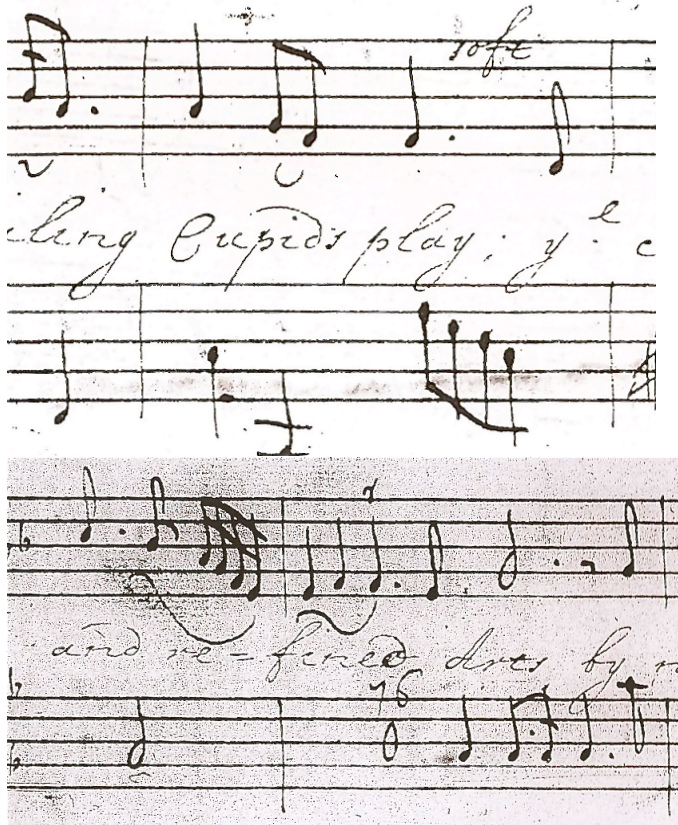 soft
iling Cupids play; yᵉ c
and re=fined Arts by
76